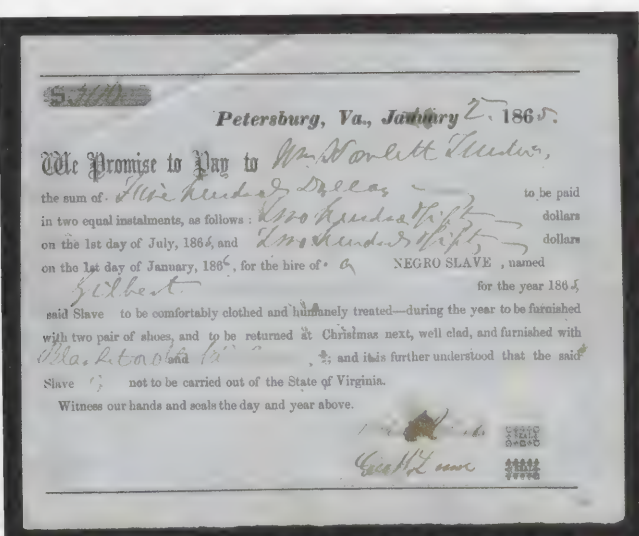 $ 500
Petersburg, Va., January 2. 1865.
We Promise to Pay to Wm Howlett
the sum of Five hundred Dollars to be paid
in two equal instalments, as follows: Two hundred & fifty dollars
on the 1st day of July, 1865, and Two hundred & fifty dollars
on the 1st day of January, 1866, for the hire of a NEGRO SLAVE , named
Gilbert for the year 1865,
said Slave to be comfortably clothed and humanely treated—during the year to be furnished
with two pair of shoes, and to be returned at Christmas next, well clad, and furnished with
and ; and it is further understood that the said
Slave not to be carried out of the State of Virginia.
Witness our hands and seals the day and year above.